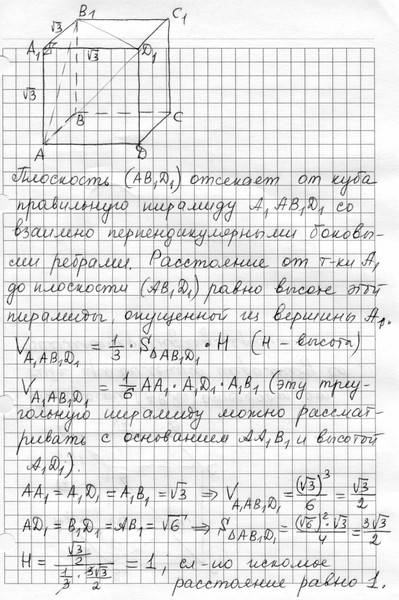 B₁ C₁
√3
A₁ √3 D₁
√3
B C
A D
Плоскость (AB₁D₁) отсекает от куба
правильную пирамиду A₁AB₁D₁ со
взаимно перпендикулярными боковы-
ми ребрами. Расстояние от т-ки A₁
до плоскости (AB₁D₁) равно высоте этой
пирамиды, опущенной из вершины A₁.
V_A₁AB₁D₁ = 1/3 · S_ΔAB₁D₁ · H (H - высота)
V_A₁AB₁D₁ = 1/6 AA₁ · A₁D₁ · A₁B₁ (эту треу-
гольную пирамиду можно рассмат-
ривать с основанием AA₁B₁ и высотой
A₁D₁).
AA₁ = A₁D₁ = A₁B₁ = √3 ⇒ V_A₁AB₁D₁ = (√3)³/6 = √3/2
AD₁ = B₁D₁ = AB₁ = √6 ⇒ S_ΔAB₁D₁ = (√6)²·√3/4 = 3√3/2
H = (√3/2)/(1/3 · 3√3/2) = 1, сл-но искомое
расстояние равно 1.